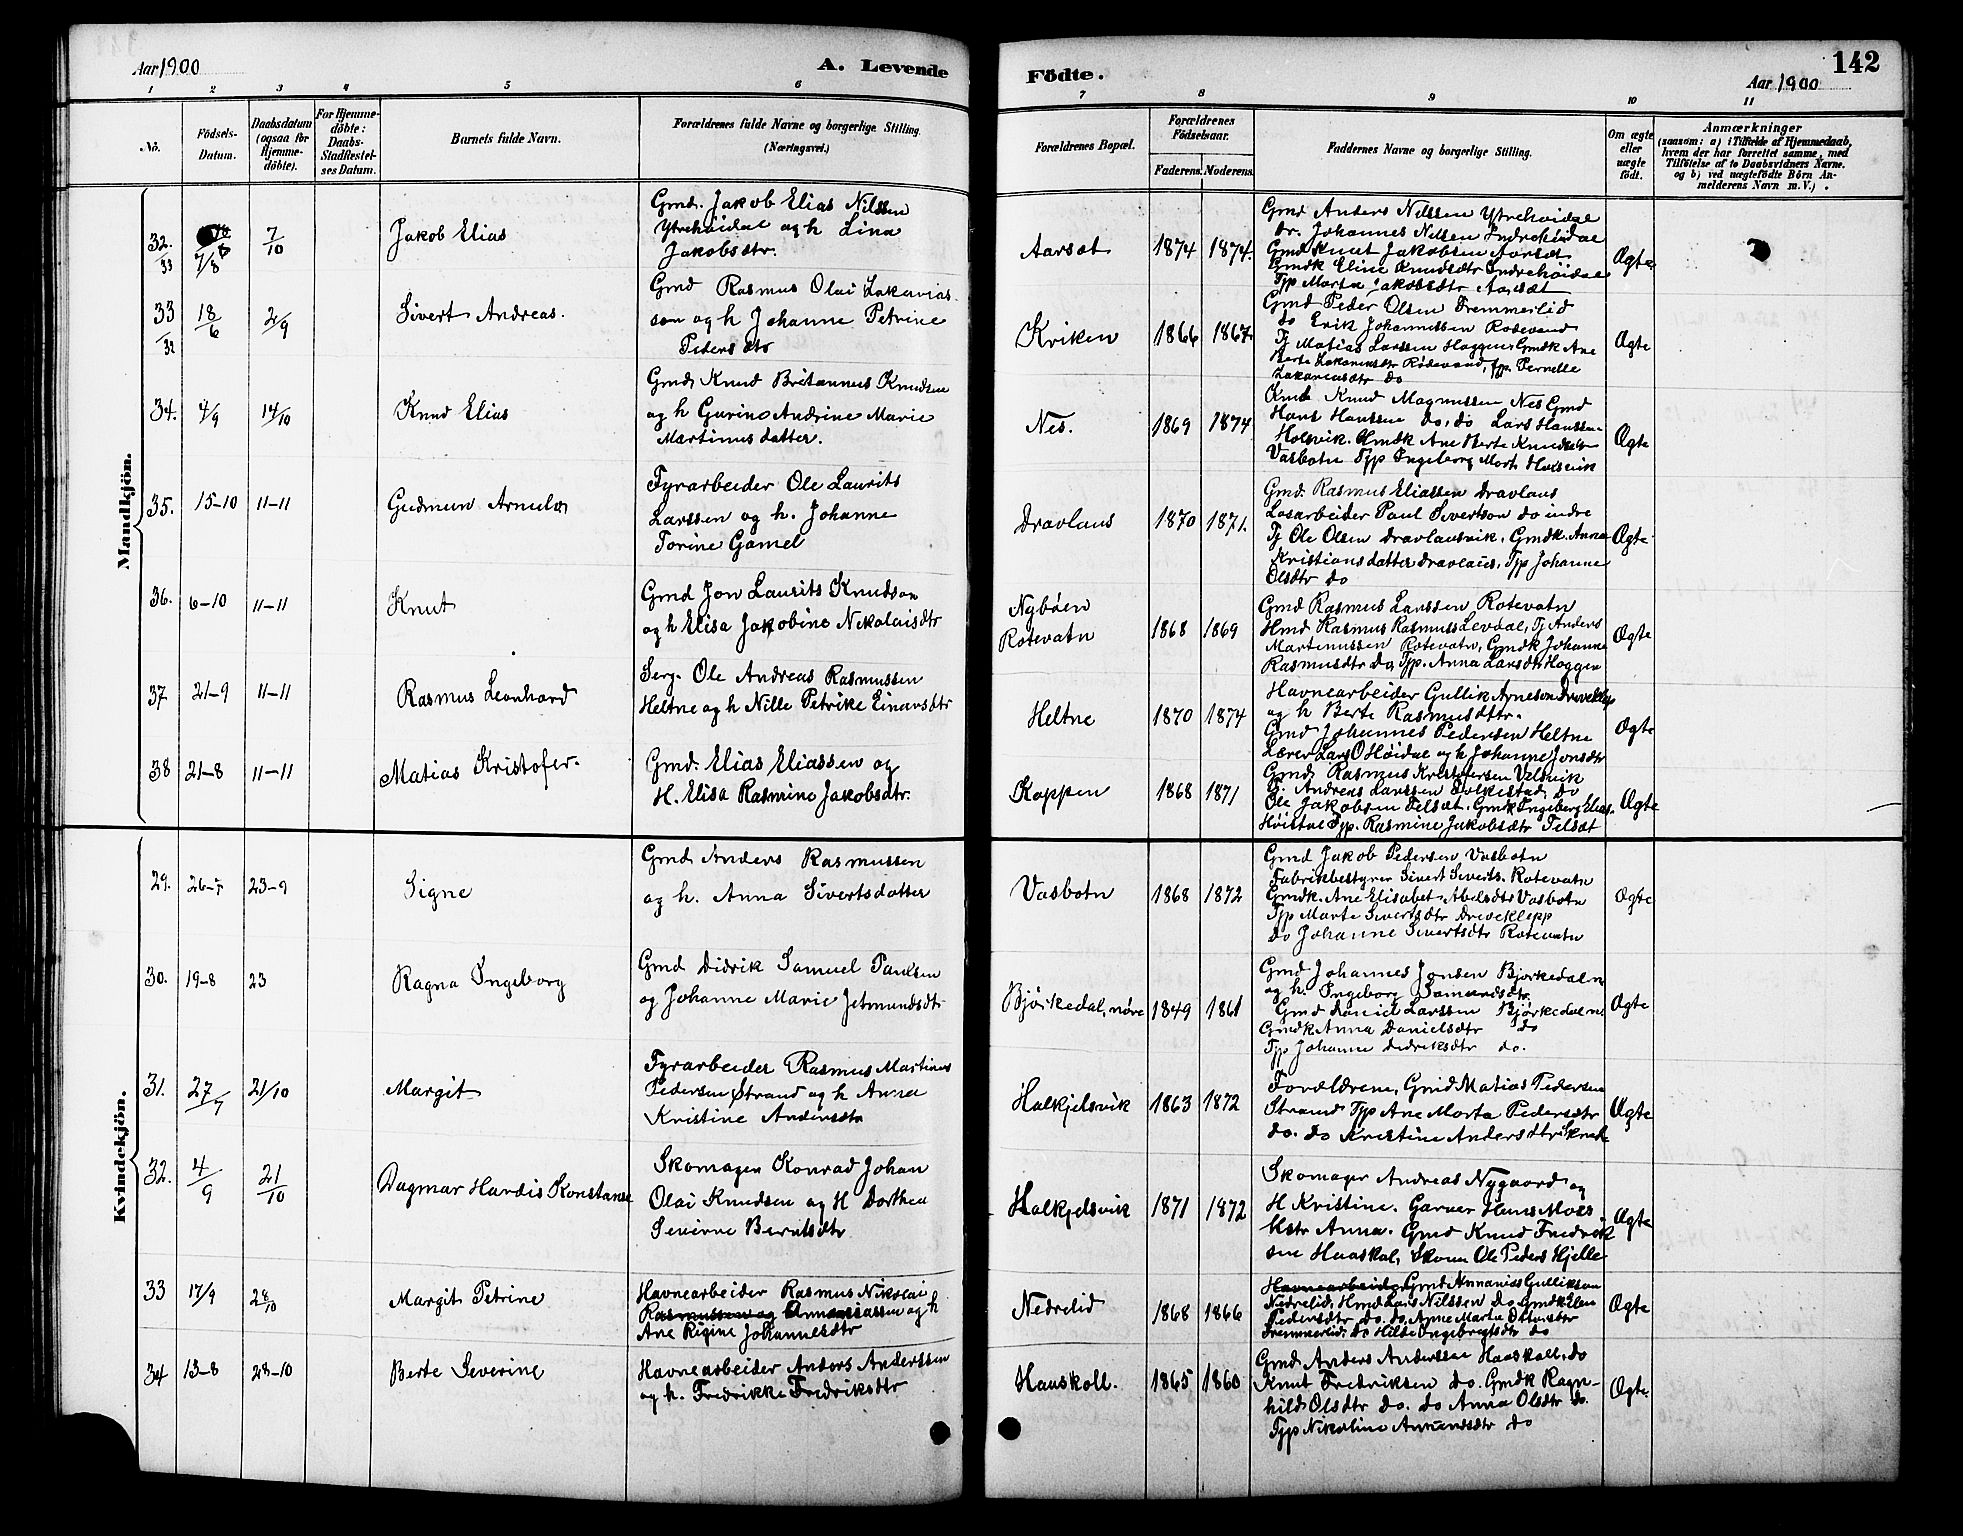 Aar 1900
A. Levende
Födte.
142
Aar 1900
1 2 3 4 5 6 7 8 9 10 11
No.
Födsels-
Datum.
Daabsdatum
(ogsaa for
Hjemme-
döbte).
For Hjemme-
döbte:
Daabs-
Stadfæstel-
ses Datum.
Barnets fulde Navn.
Forældrenes fulde Navne og borgerlige Stilling.
(Næringsvei.)
Forældrenes Bopæl.
Forældrenes
Födselsaar.
Faderens. Moderens.
Faddernes Navne og borgerlige Stilling.
Om ægte
eller
uægte
födt.
Anmærkninger
(saasom: a) i Tilfælde af Hjemmedaab,
hvem der har forrettet samme, med
Tilföielse af to Daabsvidners Navne.
og b) ved uægtefödte Börn An-
melderens Navn m. V.).
Mandkjön.
32.
33
7/8
7/10
Jakob Elias
Gmd. Jakob Elias Nilssen
Ytrehöidal og h Lina
Jakobsdtr.
Aarsæt
1874 1874.
Gmd Anders Nilssen Ytrehöidal
Johannes Nilsen Indrehöidal
Gmd Knut Jakobsen Aarsæt
Gmdk Eline Knudsdtr Indrehöidal
Tjp Marta Jakobsdtr Aarsæt
Ægte
33
32
18/6
2/9
Sivert Andreas.
Gmd Rasmus Olai Zakarias
sen og h Johanne Petrine
Pedersdtr
Kriken
1866 1867.
Gmd Peder Olsen Fremmerlid
do Erik Johannessen Rotevand
Tj Matias Larssen Hoggen Gmdk Ane
Berte Zakariasdtr Rödevand, Tjp Pernelle
Zakariasdtr do
Ægte
34.
4/9
14/10
Knud Elias
Gmd Knud Britannus Knudsen
og h Gurine Andrine Marie
Martinusdatter.
Nes.
1869 1874
Gmd Knud Magnussen Nes Gmd
Hans Hanssen do, do Lars Hanssen
Holsvik. Gmdk Ane Berte Knudsdtr
Vasbotn Tjp Ingeborg Mort Holsvik
Ægte
35.
15-10
11-11
Gudmun Arnulv
Fyrarbeider Ole Laurits
Larssen og h. Johanne
Torine Gamel
Dravlaus
1870 1871.
Gmd. Rasmus Eliassen Dravlaus
Løsarbeider Paul Sivertsen do indre
Tj Ole Olsen Dravlausvik, Gmdk. Anna
Kristiansdatter Dravlaus, Tjp Johanne
Olsdtr do
Ægte
36.
6-10
11-11
Knut
Gmd Jon Laurits Knudsen
og h Elisa Jakobine Nikolaisdtr
Nybøen
Rotevatn
1868 1869
Gmd Rasmus Larssen Rotevatn
Hmd Rasmus Rasmuss Levdal, Tj Anders
Martinussen Rotevatn, Gmdk Johanne
Rasmusdtr do, Tjp. Anna Larsdtr Hoggen
Ægte
37
21-9
11-11
Rasmus Leonhard
Serg. Ole Andreas Rasmussen
Heltne og h Nille Petrike Einarsdtr
Heltne
1870 1874
Havnearbeider Gullik Arneson Driveklep
og h Berte Rasmusdtr.
Gmd Johannes Pedersen Heltne
Lærer Lars O Höidal og h Johanne Jonsdtr
Ægte
38
21-8
11-11
Matias Kristofer.
Gmd. Elias Eliassen og
H. Elisa Rasmine Jakobsdtr.
Koppen
1868 1871
Gmd Rasmus Kristofersen Velsvik
G. Andreas Larssen Folkestad, do
Ole Jakobsen Felsæt. Gmdk Ingeberg Elias.
Tjp. Rasmine Jakobsdtr Felsæt
Ægte
Kvindekjön.
29.
26-7
23-9
Signe
Gmd Anders Rasmussen
og h. Anna Sivertsdatter
Vasbotn
1868 1872
Gmd Jakob Pedersen Vasbotn
Fabrikbestyrer Sivert Siverts. Rotevatn
Gmdk. Ane Elisabet Abelsdtr Vasbotn
Tjp Marte Sivertsdtr Driveklepp
do Johanne Sivertsdtr Rotevatn
Ægte
30.
19-8
23
Ragna Ingeborg
Gmd Didrik Samuel Paulsen
og Johanne Marie Jetmundsdtr
Bjørkedal, nøre
1849 1861
Gmd Johannes Jonsen Bjorkedal n
og h. Ingeborg Samundsdtr.
Gmd Daniel Larssen Bjørkedal n
Gmdk Anna Danielsdtr do
Tjp Johanne Didriksdtr do.
Ægte
31.
27/7
21/10
Margit
Fyrarbeider Rasmus Martinus
Pedersen Strand og h Anna
Kristine Andersdtr
Halkjelsvik
1863 1872
Forældrene, Gmd Matias Pedersen
Strand Tjp Ane Marta Pedersdtr
do. do Kristine Andersdtr
Ægte
32.
4/9
21/10
Dagmar Hardis Konstanse
Skomager Konrad Johan
Olai Knudsen og H Dorthea
Severine Berntsdtr
Halkjelsvik
1871 1872
Skomager Andreas Nygaard og
H Kristine. Garver Hans Moes
Hstr Anna. Gmd Knud Fredrik
sen Haaskol, Skom Ole Peders Hjelle
Ægte
33
17/9
28/10
Margit Petrine
Havnearbeider Rasmus Nikolai
Rasmussen og Annaniassen og h
Ane Regine Johannesdtr
Nedrelid
1868 1866
Havnearbeider Gmd Annanias Gulliksen
Nedrelid, Hmd Lars Nilssen do Gmdk Elen
Pedersdtr do. do. Anne Marta Ottarsdtr
Fremmerlid, do Hilde Ingebrigtsdtr do
Ægte
34
13-8
28-10
Berte Severine
Havnearbeider Anders Anderssen
og h. Fredrikke Fredriksdtr
Hauskoll.
1865 1860
Gmd. Anders Anderssen Haaskoll, do
Knut Fredriksen do. Gmdk Ragn-
hild Olsdtr do. do Anna Olsdtr do.
Tjp Nikoline Amundsdtr do
Ægte